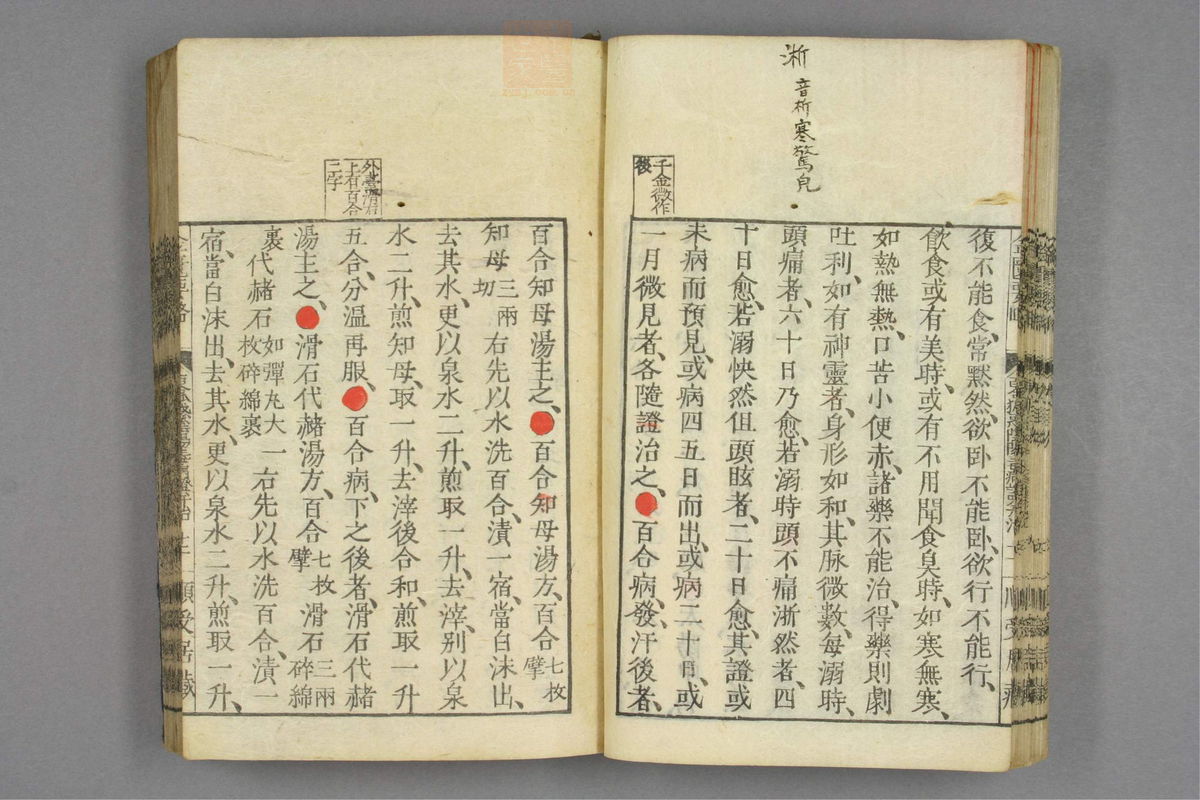 淅 音析寒驚皃
千金微作
後
復不能食、常黙然、欲卧不能卧、欲行不能行、
飲食或有美時、或有不用聞食臭時、如寒無寒、
如熱無熱、口苦小便赤、諸藥不能治、得藥則劇
吐利、如有神靈者、身形如和、其脉微數、每溺時、
頭痛者、六十日乃愈、若溺時頭不痛淅然者、四
十日愈、若溺快然但頭眩者、二十日愈、其證或
未病而預見、或病四五日而出、或病二十日、或
一月微見者、各隨證治之、百合病、發汗後者、
外臺滑石
上有百合
三字
百合知母湯主之、百合知母湯方、百合七枚擘
知母三兩切右先以水洗百合、漬一宿、當白沫出、
去其水、更以泉水二升、煎取一升、去滓、別以泉
水二升、煎知母、取一升、去滓後合和、煎取一升
五合、分温再服、百合病、下之後者、滑石代赭
湯主之、滑石代赭湯方、百合七枚擘滑石三兩碎綿
裹代赭石如彈丸大一枚碎綿裹右先以水洗百合、漬一
宿、當白沫出、去其水、更以泉水二升、煎取一升、